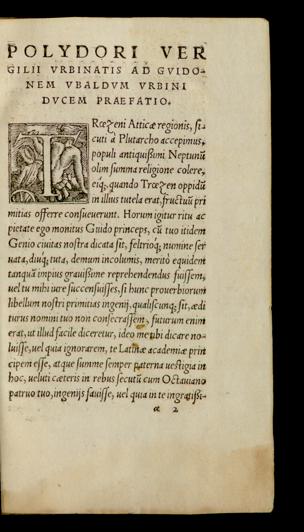 POLYDORI VER
GILII VRBINATIS AD GVIDO-
NEM VBALDVM VRBINI
DVCEM PRAEFATIO.
TRœzeni Atticæ regionis, si-
cuti à Plutarcho accepimus,
populi antiquißimi Neptunū
olim summa religione colere,
eiq;, quando Trœzen oppidū
in illius tutela erat, fructuū pri
mitias offerre consueuerunt. Horum igitur ritu ac
pietate ego monitus Guido princeps, cū tuo itidem
Genio ciuitas nostra dicata sit, feltrioq; numine ser
uata, diuq; tuta, demum incolumis, meritò equidem
tanquā impius grauissime reprehendendus fuissem,
uel tu mihi iure succensuisses, si hunc prouerbiorum
libellum nostri primitias ingenij, qualiscunq; sit, ædi
turus nomini tuo non consecrassem, futurum enim
erat, ut illud facile diceretur, ideo me tibi dicare no-
luisse, uel quia ignorarem, te Latinæ academiæ prin
cipem esse, atque summe semper paterna uestigia in
hoc, ueluti cæteris in rebus secutū cum Octauiano
patruo tuo, ingenijs fauisse, uel quia in te ingratißi-
a 2